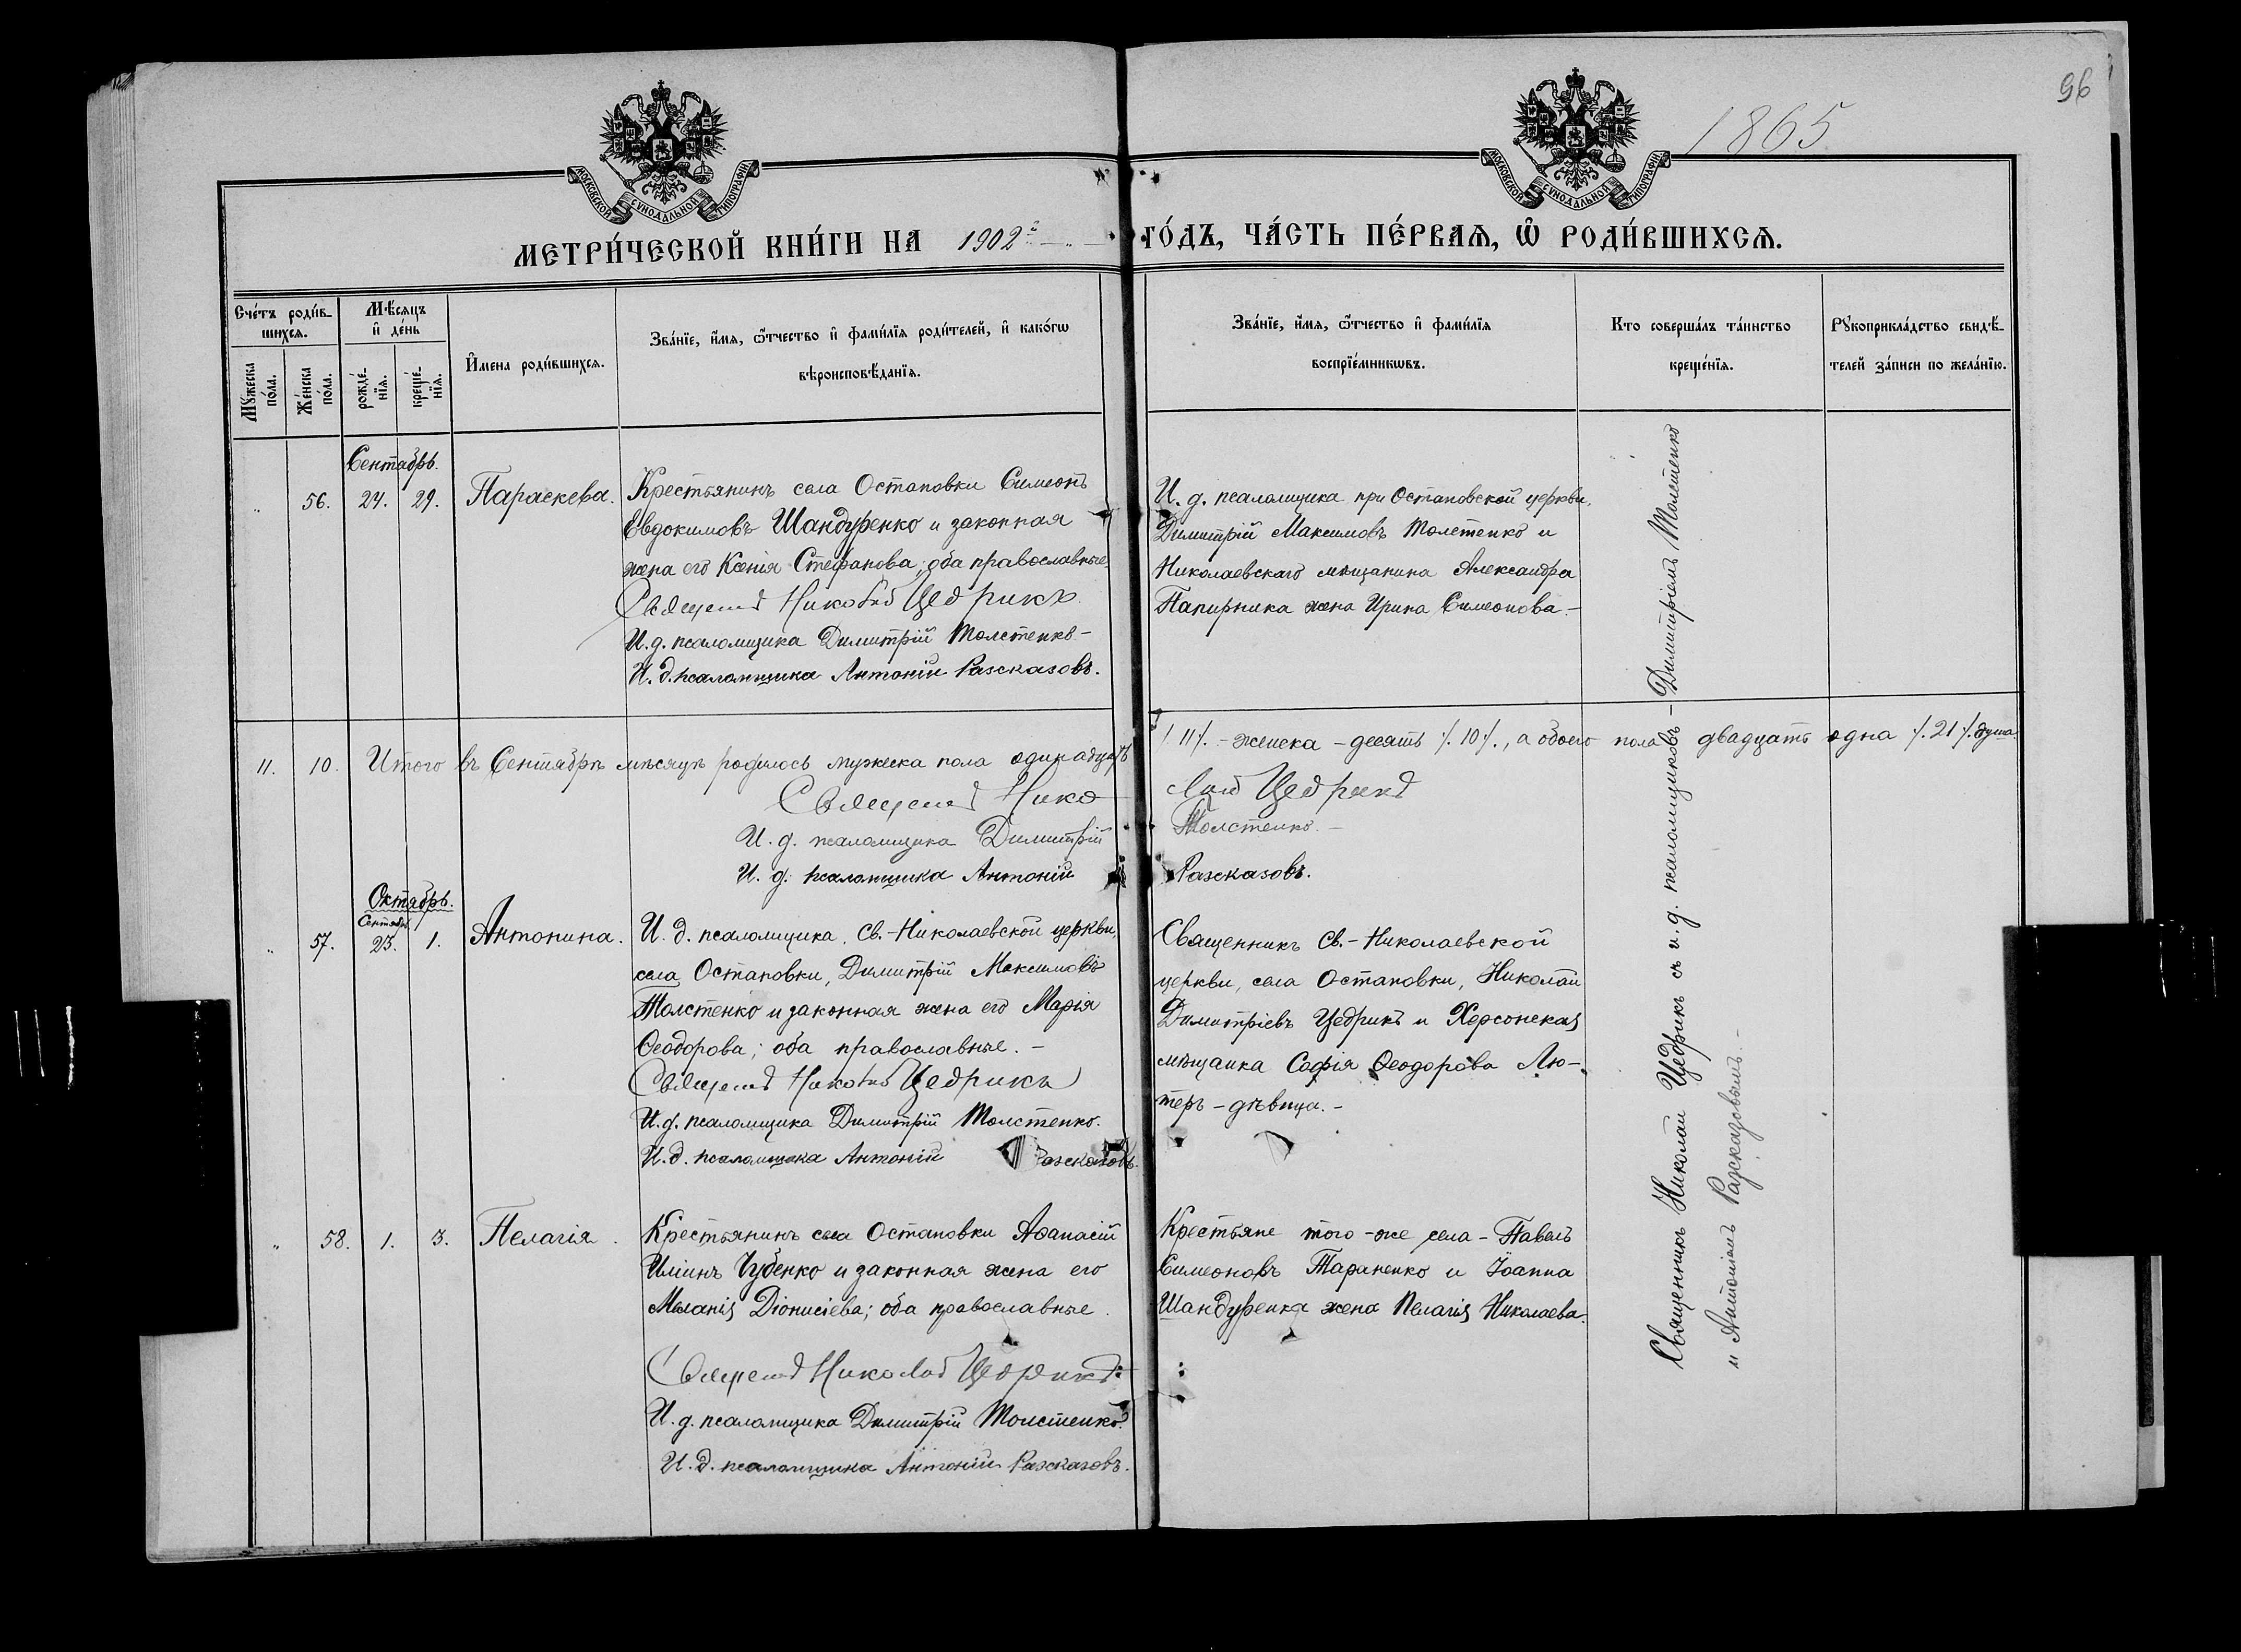 96
1865
МОСКОВСКОЙ СѴНОДАЛЬНОЙ ТИПОГРАФІИ
МОСКОВСКОЙ СѴНОДАЛЬНОЙ ТИПОГРАФІИ
МЕТРИ́ЧЕСКОЙ КНИ́ГИ НА 1902й ГО́ДЪ, ЧА́СТЬ ПЕ́РВАѦ, Ѡ РОДИ́ВШИХСѦ.
Сче́тъ роди́в-
шихсѧ.
Мꙋ́жеска по́ла.
Же́нска по́ла.
Мѣ́сѧцъ
и҆ де́нь
рожде́-
нїѧ.
креще́-
нїѧ.
И҆мена роди́вшихсѧ.
Зва́нїе, и҆́мѧ, ѻ҆́тчество и҆ фами́лїѧ роди́телей, и҆ како́гѡ
вѣроисповѣ́данїѧ.
Зва́нїе, и҆́мѧ, ѻ҆́тчество и҆ фами́лїѧ
воспрїе́мникѡвъ.
Кто соверша́лъ та́инство
креще́нїѧ.
Рꙋкоприкла́дство свидѣ́-
телей за́писи по жела́нїю.
Сентябрь.
„ 56. 24. 29. Параскева.
Крестьянинъ села Остановки Симеонъ
Евдокимовъ Шандуренко и законная
жена его Ксенія Стефанова, оба православные
Священникъ Николай Цедрикъ
И. д. псаломщика Димитрій Толстенко -
И. д. псаломщика Антоній Разсказовъ.
И. д. псаломщика при Остановской церкви,
Димитрій Максимовъ Толстенко и
Николаевскаго мѣщанина Александра
Папирника жена Ирина Симеонова. -
11. 10. Итого въ Сентябрѣ мѣсяцѣ родилось мужеска пола одинадцать /.11/. - женска - десять /.10/., а обоего пола двадцать одна /.21/. душа.
Священникъ Николай Цедрикъ
И. д. псаломщика Димитрій Толстенко. -
И. д. псаломщика Антоній Разсказовъ.
Октябрь.
Сентябр.
„ 57. 25. 1. Антонина.
И. д. псаломщика Св.-Николаевской церкви,
села Остановки, Димитрій Максимовъ
Толстенко и законная жена его Марія
Ѳеодорова; оба православные. -
Священникъ Николай Цедрикъ
И. д. псаломщика Димитрій Толстенко.
И. д. псаломщика Антоній Разсказовъ.
Священникъ Св.-Николаевской
церкви, села Остановки, Николай
Димитріевъ Цедрикъ и Херсонская
мѣщанка Софія Ѳеодорова Лю-
теръ - дѣвица. -
„ 58. 1. 3. Пелагія.
Крестьянинъ села Остановки Аѳанасій
Ильинъ Чубенко и законная жена его
Меланія Діонисіева; оба православные.
Священникъ Николай Цедрикъ
И. д. псаломщика Димитрій Толстенко.
И. д. псаломщика Антоній Разсказовъ.
Крестьяне того-же села - Павелъ
Симеоновъ Тараненко и Іоанна
Шандуренка жена Пелагія Николаева.
Священникъ Николай Цедрикъ съ и. д. псаломщиковъ - Димитріемъ Толстенко
и Антоніемъ Разсказовымъ. -